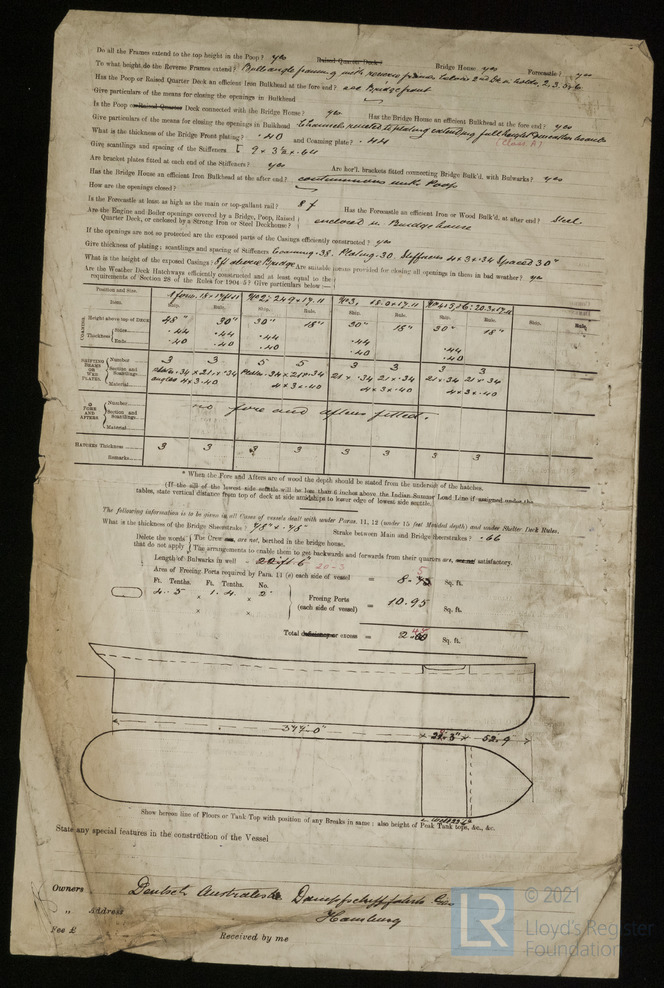 Do all the Frames extend to the top height in the Poop? yes Raised Quarter Deck? Bridge House yes Forecastle? yes
To what height do the Reverse Frames extend? Bulb angle framing with reverse frames below 2nd Dk in holds, 2, 3, 5 & 6
Has the Poop or Raised Quarter Deck an efficient Iron Bulkhead at the fore end? see Bridge front
Give particulars of the means for closing the openings in Bulkhead
Is the Poop or Raised Quarter Deck connected with the Bridge House? yes Has the Bridge House an efficient Bulkhead at the fore end? yes
Give particulars of the means for closing the openings in Bulkhead Channels riveted to plating extending full height
(Class A)
What is the thickness of the Bridge Front plating? .40 and Coaming plate? .44
Give scantlings and spacing of the Stiffeners [ 9 x 3½ x .64
Are bracket plates fitted at each end of the Stiffeners? yes Are hor'l. brackets fitted connecting Bridge Bulk'd. with Bulwarks? yes
Has the Bridge House an efficient Iron Bulkhead at the after end? continuous with Poop
How are the openings closed?
Is the Forecastle at least as high as the main or top-gallant rail? 8 ft Has the Forecastle an efficient Iron or Wood Bulk'd. at after end? Steel
Are the Engine and Boiler openings covered by a Bridge, Poop, Raised Quarter Deck, or enclosed by a Strong Iron or Steel Deckhouse? enclosed in Bridge house
If the openings are not so protected are the exposed parts of the Casings efficiently constructed? yes
Give thickness of plating; scantlings and spacing of Stiffeners Coaming .38. Plating .30 Stiffeners 4 x 3 x .34 Spaced 30"
What is the height of the exposed Casings? 8ft above Bridge Are suitable means provided for closing all openings in them in bad weather? yes
Are the Weather Deck Hatchways efficiently constructed and at least equal to the
requirements of Section 28 of the Rules for 1904-5? Give particulars below:—
Position and Size.
Item.
No 2; 24.9 x 17.11 No 3, 18.0 x 17.11 No 4, 5, & 6: 20.3 x 17.11
COAMING Height above top of DECK 48" 30" 30" 18" 30" 18" 30" 18"
Thickness Sides .44 .44 .44 .44 .44
Ends .40 .40 .40 .40 .40
SHIFTING BEAMS OR WEB PLATES Number 3 3 5 5 3 3 3 3
Section and Scantlings
Material angles 4 x 3 .40 4 x 3 x .40 4 x 3 x .40 4 x 3 x .40
FORE AND AFTERS Number
Section and Scantlings no fore and afters fitted.
Material
HATCHES Thickness 3 3 3 3 3 3 3 3
Remarks
* When the Fore and Afters are of wood the depth should be stated from the underside of the hatches.
(If the sill of the lowest side scuttle will be less than 6 inches above the Indian Summer Load Line if assigned under the
tables, state vertical distance from top of deck at side amidships to lower edge of lowest side scuttle.
The following information is to be given in all Cases of vessels dealt with under Paras. 11, 12 (under 15 feet Moulded depth) and under Shelter Deck Rules.
What is the thickness of the Bridge Sheerstrake? Strake between Main and Bridge Sheerstrakes? .66
Delete the words that do not apply The Crew are, are not, berthed in the bridge house.
The arrangements to enable them to get backwards and forwards from their quarters are, are not satisfactory.
Length of Bulwarks in well = 20-3
Area of Freeing Ports required by Para. 11 (e) each side of vessel = Sq. ft.
Ft. Tenths. Ft. Tenths. No.
4.5 x 1.4 x 2 Freeing Ports (each side of vessel) = 10.95 Sq. ft.
x x
Total deficiency or excess = Sq. ft.
52.9
Show hereon line of Floors or Tank Top with position of any Breaks in same: also height of Peak Tank tops, &c., &c.
State any special features in the construction of the Vessel
Owners Deutsch Australische Dampfschiffahrts Ges
" Address Hamburg
Fee £ Received by me
LR © 2021
Lloyd's Register
Foundation